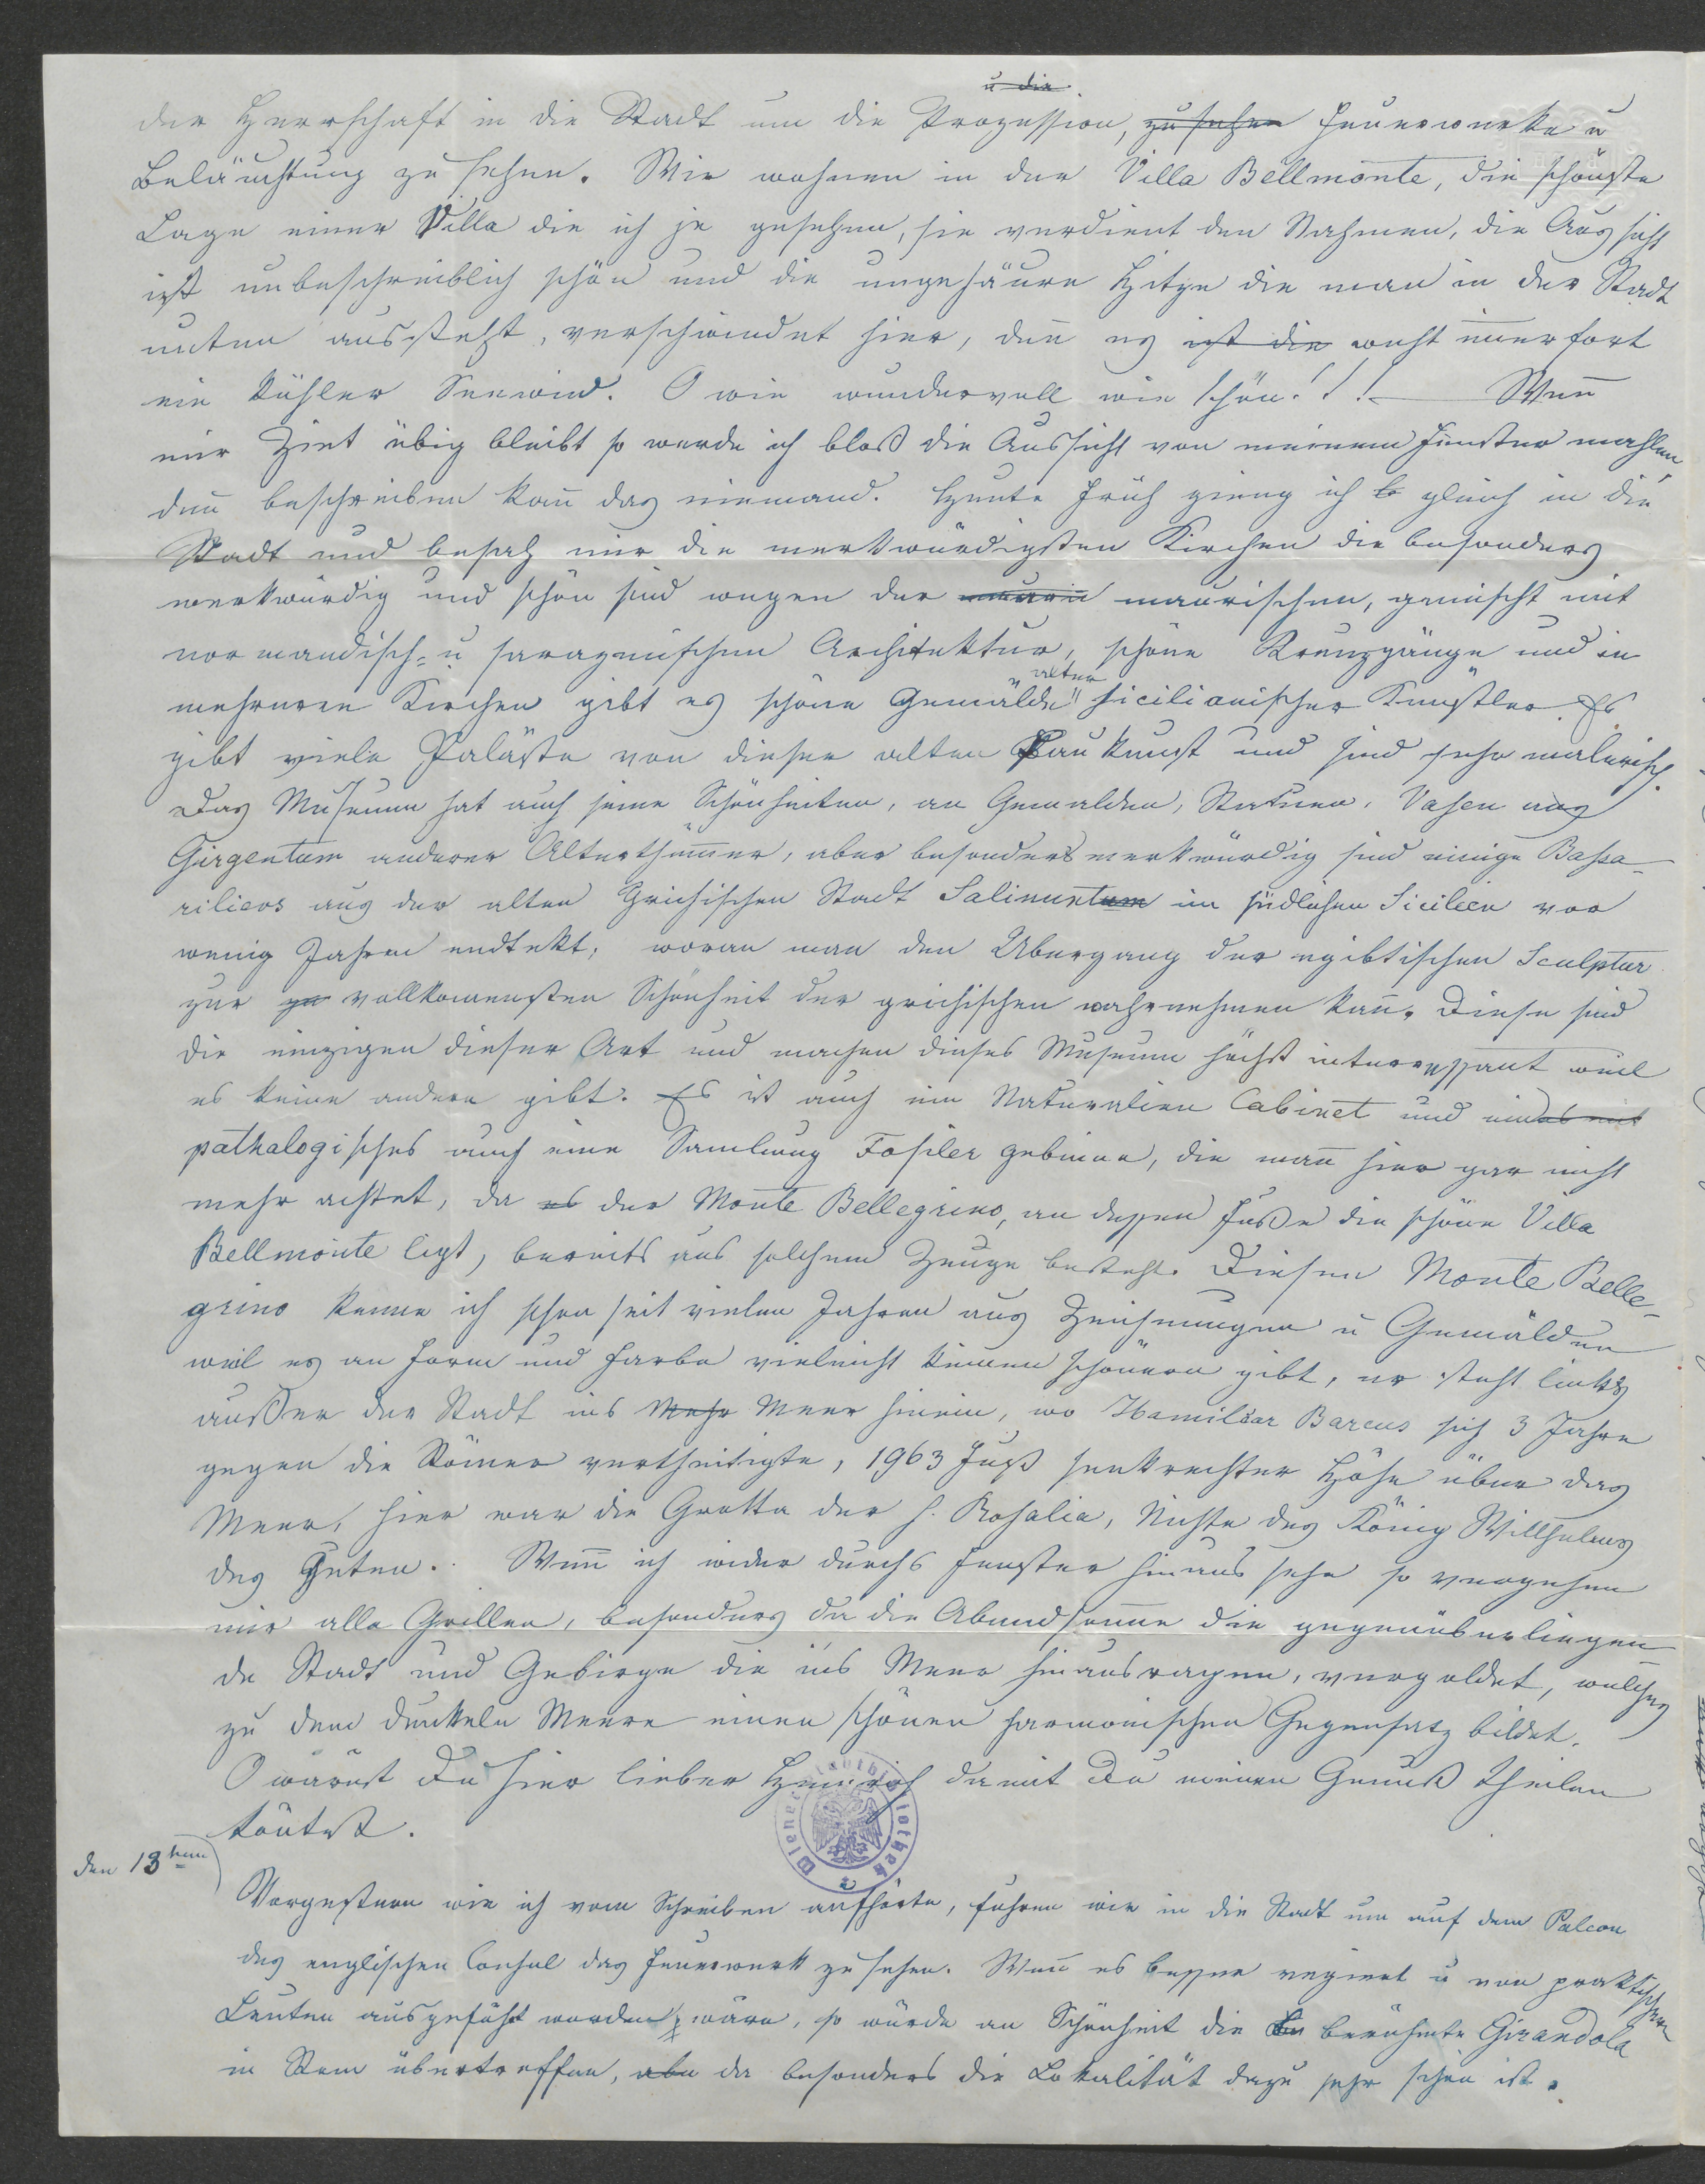 u die
der Herrschaft in die Stadt um die Prozession, zu sehen Feuerwerke u
Beläuchtung zu sehen. Wir wohnen in der Villa Bellmonte, die schönste
Lage einer Villa die ich je gesehen, sie verdient den Nahmen, die Aussicht
ist unbeschreiblich schön und die ungeheure Hitze die man in der Stadt
unten aussteht, verschwindet hier, den̄ es ist die weht im̄erfort
ein kühler Seewind. O wie wundervoll wie schön!!! — Wen̄
mir Zeit übig bleibt so werde ich bloß die Aussicht von meinem Fenster mahlen
den̄ beschreiben kan̄ das niemand. Heute früh gieng ich b gleich in die
Stadt und besah mir die merkwürdigsten Kirchen die besonders
merkwürdig und schön sind wegen der mauri maurischen, gemischt mit
normandisch- u sarazenischen Architektur, schöne Kreuzgänge und in
mehreren Kirchen gibt es schöne Gemälde alter sicilianischer Künstler. Es
gibt viele Paläste von dieser alten Baukunst und sind sehr malerisch.
Das Museum hat auch seine Schönheiten, an Gemälden, Statuen, Vasen aus
Girgentum anderer Alterthüm̄er, aber besonders merkwürdig sind einige Bassa-
rilievs aus der alten Grichischen Stadt Salinuntum im südlichen Sicilien vor
wenig Jahren endtekt, woran man den Übergang der egibtischen Sculptur
zur ge vollkom̄ensten Schönheit der grichischen wahrnehmen kan̄. Diese sind
die einzigen dieser Art und machen dieses Museum höchst interressant weil
es keine andern gibt. Es ist auch ein Naturalien Cabinet und eindes mit
pathalogisches auch eine Samlung Fosiler gebeine, die man̄ hier gar nicht
mehr achtet, da es der Monte Bellegrino, an dessen Fuße die schöne Villa
Bellmonte ligt, bereits aus solchem Zeuge besteht. Diesen Monte Belle-
grino kenne ich schon seit vielen Jahren aus Zeichnungen u Gemälden
weil es an Form und Farbe vieleicht keinen schönern gibt, er steht links
außer der Stadt ins Mehr Meer hinein, wo Hamilcar Barcus sich 3 Jahre
gegen die Römer vertheitigte, 1963 Fuß senkrechter Höhe über das
Meer, hier war die Grotta der h. Rosalia, Nichte des König Willhelms
des Guten. Wen̄ ich wider durchs Fenster hinaus sehe so vergehen
mir alle Grillen, besonders da die Abendson̄e die gegenüberliegen
de Stadt und Gebirge die ins Meer hinausragen, vergoldet, welches
zu dem dunkeln Meere einen schönen harmonischen Gegensatz bildet.
O wärest Du hier lieber Heinrich damit Du meinen Genuß theilen
köntest.
den 13ten
Vorgestern wie ich vom Schreiben aufhörte, fuhren wir in die Stadt um auf dem Palcon
des englischen Consul das Feuerwerk zu sehen. Wen̄ es besser regiert u von praktischen
Leuten ausgeführt worden wäre, so würde an Schönheit die berühmte Girandola
in Rom übertreffen, abe da besonders die Lokalität dazu sehr schön ist.
Wiener Stadtbibliothek